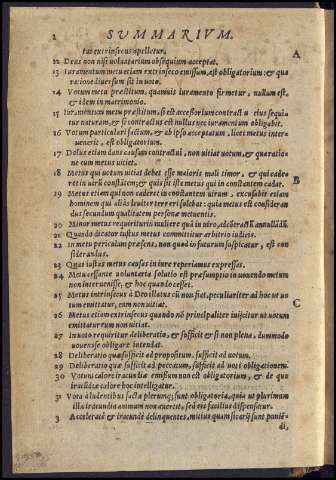 2 SUMMARIVM.
tus extrinsecus apelletur.
A
12 Deus non nisi uoluntarium obsequium acceptat.
13 Iuramentum metu etiam extrinseco emissum, est obligatorium: & qua
ratione diuersum sit in uoto.
14 Votum metu præstitum, quamuis iuramento firmetur, nullum est,
& idem in matrimonio.
15 Iuramentum metu præstitum, si est accessorium contractus eius sequitur
naturam, & si contractus est nullus nec iuramentum obligabit.
16 Votum particulari factum, & ab ipso acceptatum, licet metus inter-
uenerit, est obligatorium.
17 Dolus etiam dans causam contractui, non uitiat uotum, & qua ratio-
ne eum metus uitiet.
18 Metus qui uotum uitiat debet esse maioris mali timor, & qui cade-
ret in uirū constātem; & quis sit iste metus qui in constantem cadat.
B
19 Metus etiam qui non caderet in constantem uirum, excusabit etiam
hominem qui aliàs leuiter terreri solebat: quia metus est consideran
dus secundum qualitatem personæ metuentis.
20 Minor metus requiritur in muliere quā in uiro, ad
21 Quando dicatur iustus metus committitur arbitrio iudicis.
22 In metu periculum præsens, non quod in futurum suspicatur, est con
siderandus.
23 Quæ iustas metus causas in iure reperiamus expressas.
24 Metu cessante uoluntaria solutio est præsumptio in uouendo metum
non interuenisse, & hoc quando cesset.
25 Metus intrinsecus à Deo illatus cū nos fiat, peculiariter ad hoc ut uo
tum emittatur, eum non uitiat.
C
26 Metus etiam extrinsecus quando nō principaliter inijcitur ut uotum
emittatur eum non uitiat.
27 In uoto requiritur deliberatio, & sufficit & si non plena, dummodo
uouens se obligare intendat.
28 Deliberatio quæ sufficit ad propositum, sufficit ad uotum.
29 Deliberatio quæ sufficit ad peccatum, sufficit ad uoti obligationem.
30 Votum calore iracundiæ emissum non est obligatorium, & de quo
iracundiæ calore hoc intelligatur.
31 Vota à ludentibus facta plerunq; sunt obligatoria, quia ut plurimum
illa iracundia animum non auertit, sed eis facilius dispensatur.
3 Acceleratè & iracundè delinquentes, mitius quam sicarij sunt punië-
di,